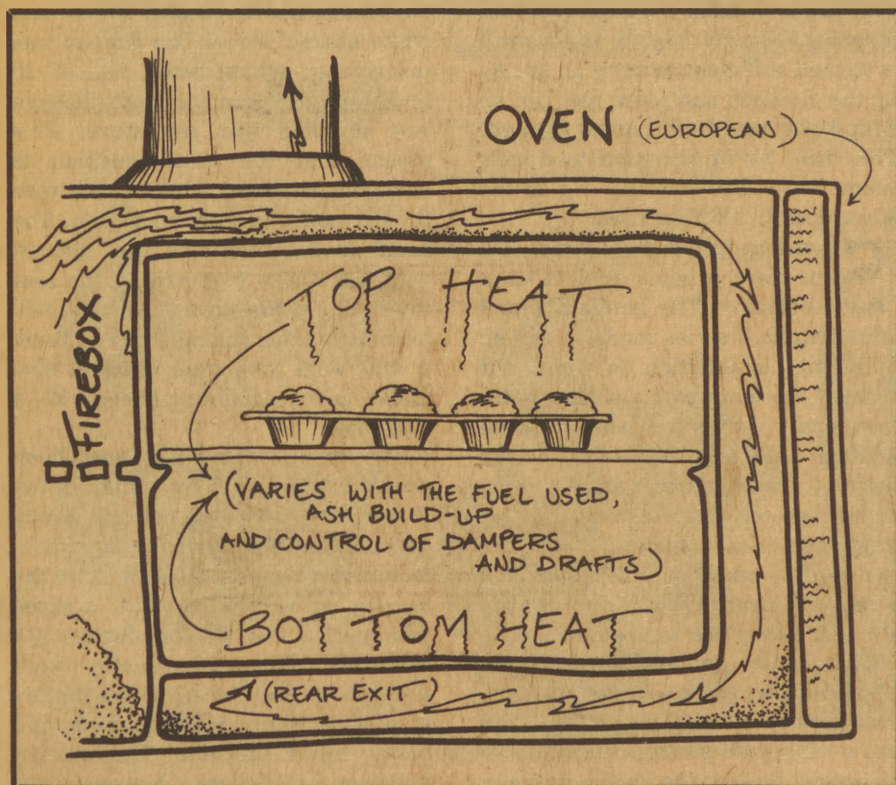 OVEN (EUROPEAN)
FIREBOX
TOP HEAT
(VARIES WITH THE FUEL USED,
ASH BUILD-UP
AND CONTROL OF DAMPERS
AND DRAFTS)
BOTTOM HEAT
(REAR EXIT)